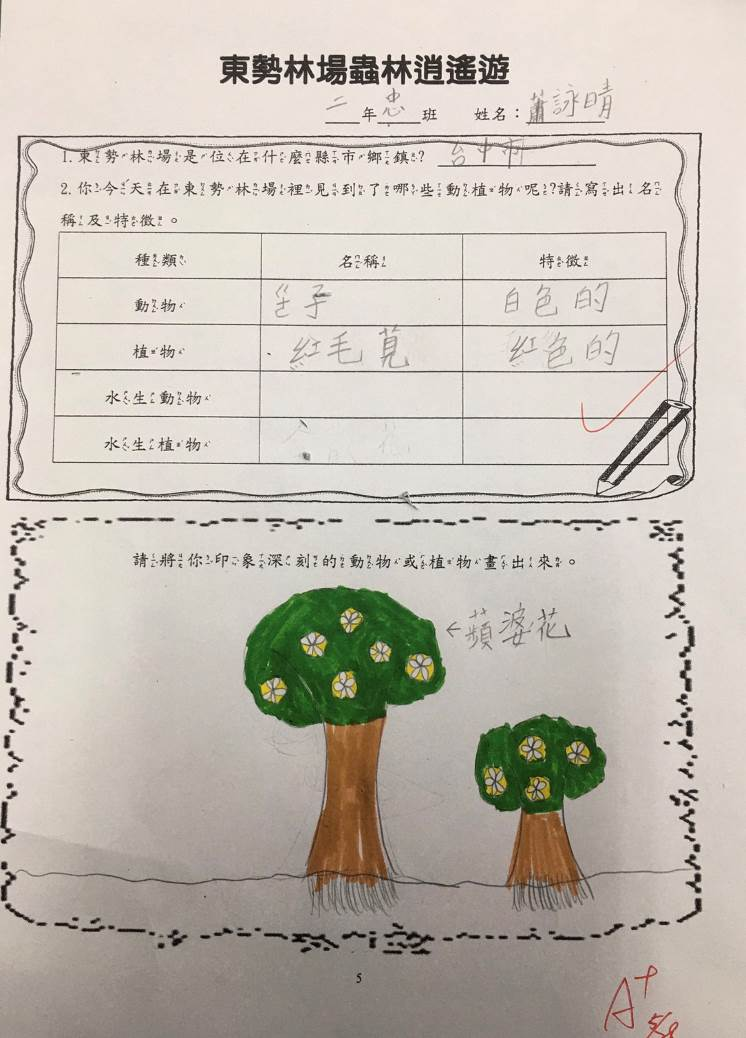 東勢林場蟲林逍遙遊
二年忠班 姓名：蕭詠晴
1.東勢林場是位在什麼縣市鄉鎮? 台中市
2.你今天在東勢林場裡見到了哪些動植物呢?請寫出名
稱及特徵。
種類 名稱 特徵
動物 子 白色的
植物 紅毛莧 紅色的
水生動物
水生植物 花
請將你印象深刻的動物或植物畫出來。
←蘋婆花
5
A+
5/8